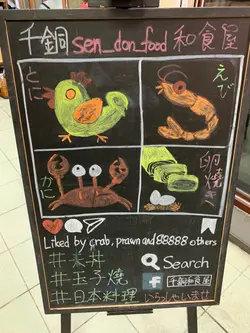 千銅 sen_don_food 和食屋
とに
えび
かに
卵焼き
Liked by crab, prawn and 88888 others
#天丼
Search
#玉子燒
f 千銅和食屋
#日本料理
いらっしゃいませ